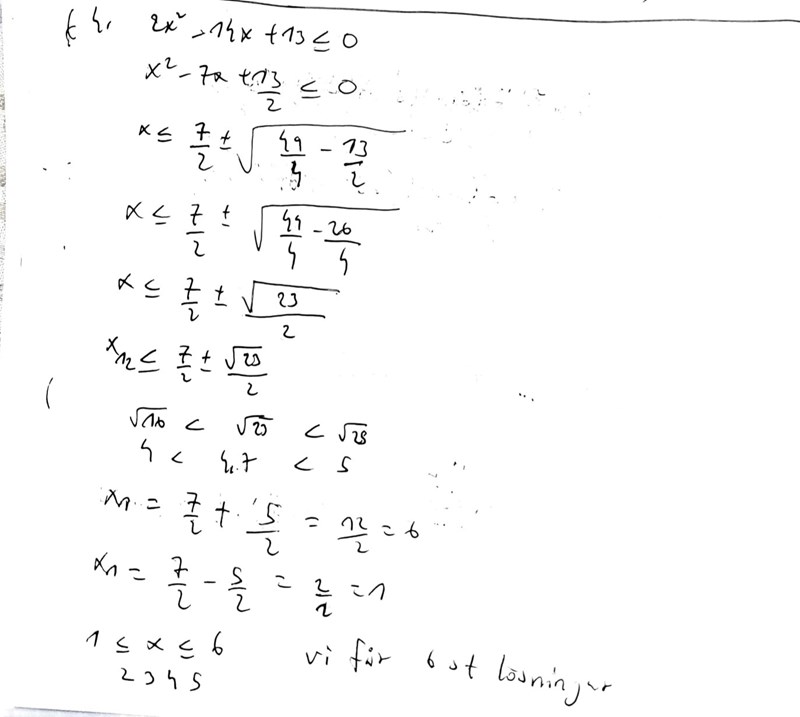 2x² - 14x + 13 ≤ 0
x² - 7x + 13/2 ≤ 0
x ≤ 7/2 ± √(49/4 - 13/2)
x ≤ 7/2 ± √(49/4 - 26/4)
x ≤ 7/2 ± √23/2
x₁₂ ≤ 7/2 ± √23/2
√16 < √23 < √25
4 < 4.7 < 5
x₁ = 7/2 + 5/2 = 12/2 = 6
x₁ = 7/2 - 5/2 = 2/2 = 1
1 ≤ x ≤ 6 vi får 6 st lösningar
2 3 4 5